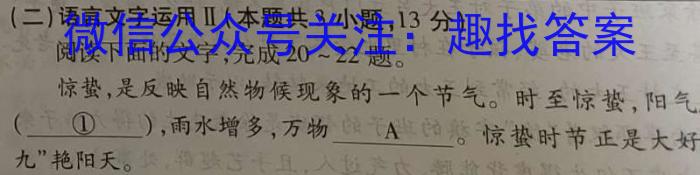 (二)语言文字运用Ⅱ(本题共3小题,13分)
微信公众号关注:趣找答案
阅读下面的文字,完成20~22题。
惊蛰,是反映自然物候现象的一个节气。时至惊蛰,阳气
(①),雨水增多,万物 A 。惊蛰时节正是大好
九”艳阳天。